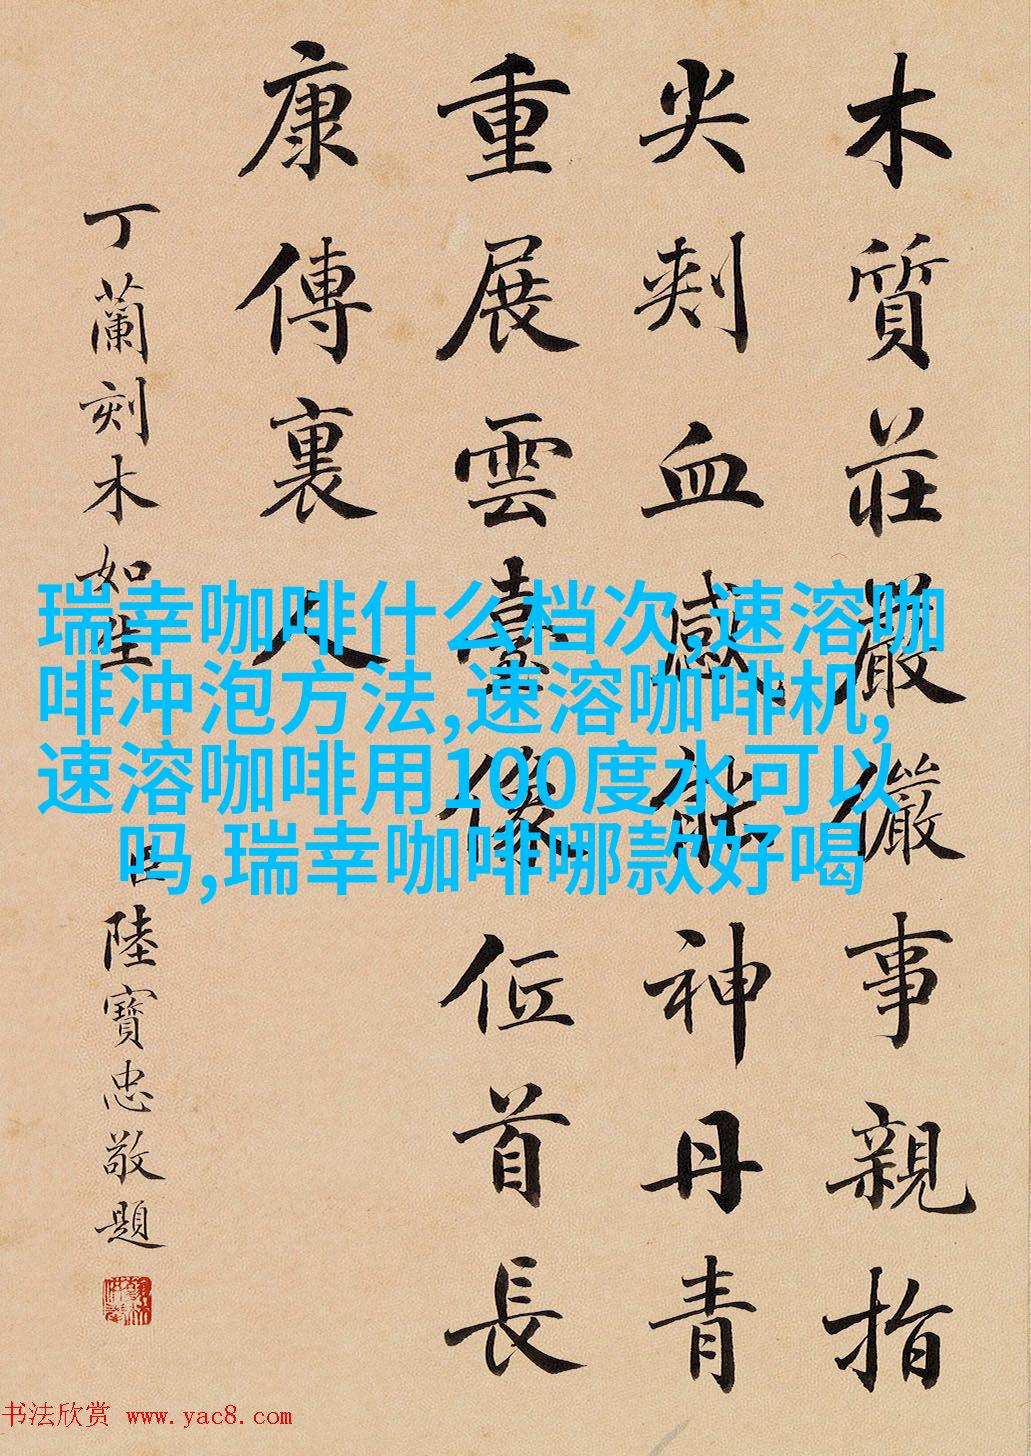 木質莊嚴儼事親指
尖刾血感能神丹青
重展雲臺像低首長
康傳裏人
丁蘭刻木如生
臣陸寶忠敬題
瑞幸咖啡什么档次,速溶咖
啡冲泡方法,速溶咖啡机,
速溶咖啡用100度水可以
吗,瑞幸咖啡哪款好喝
书法欣赏 www.yac8.com